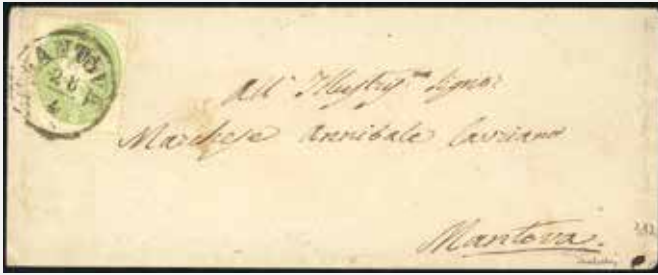 MANTOVA
28
4
All' Illustr.mo Signor
Marchese Annibale Cavriani
Mantova.